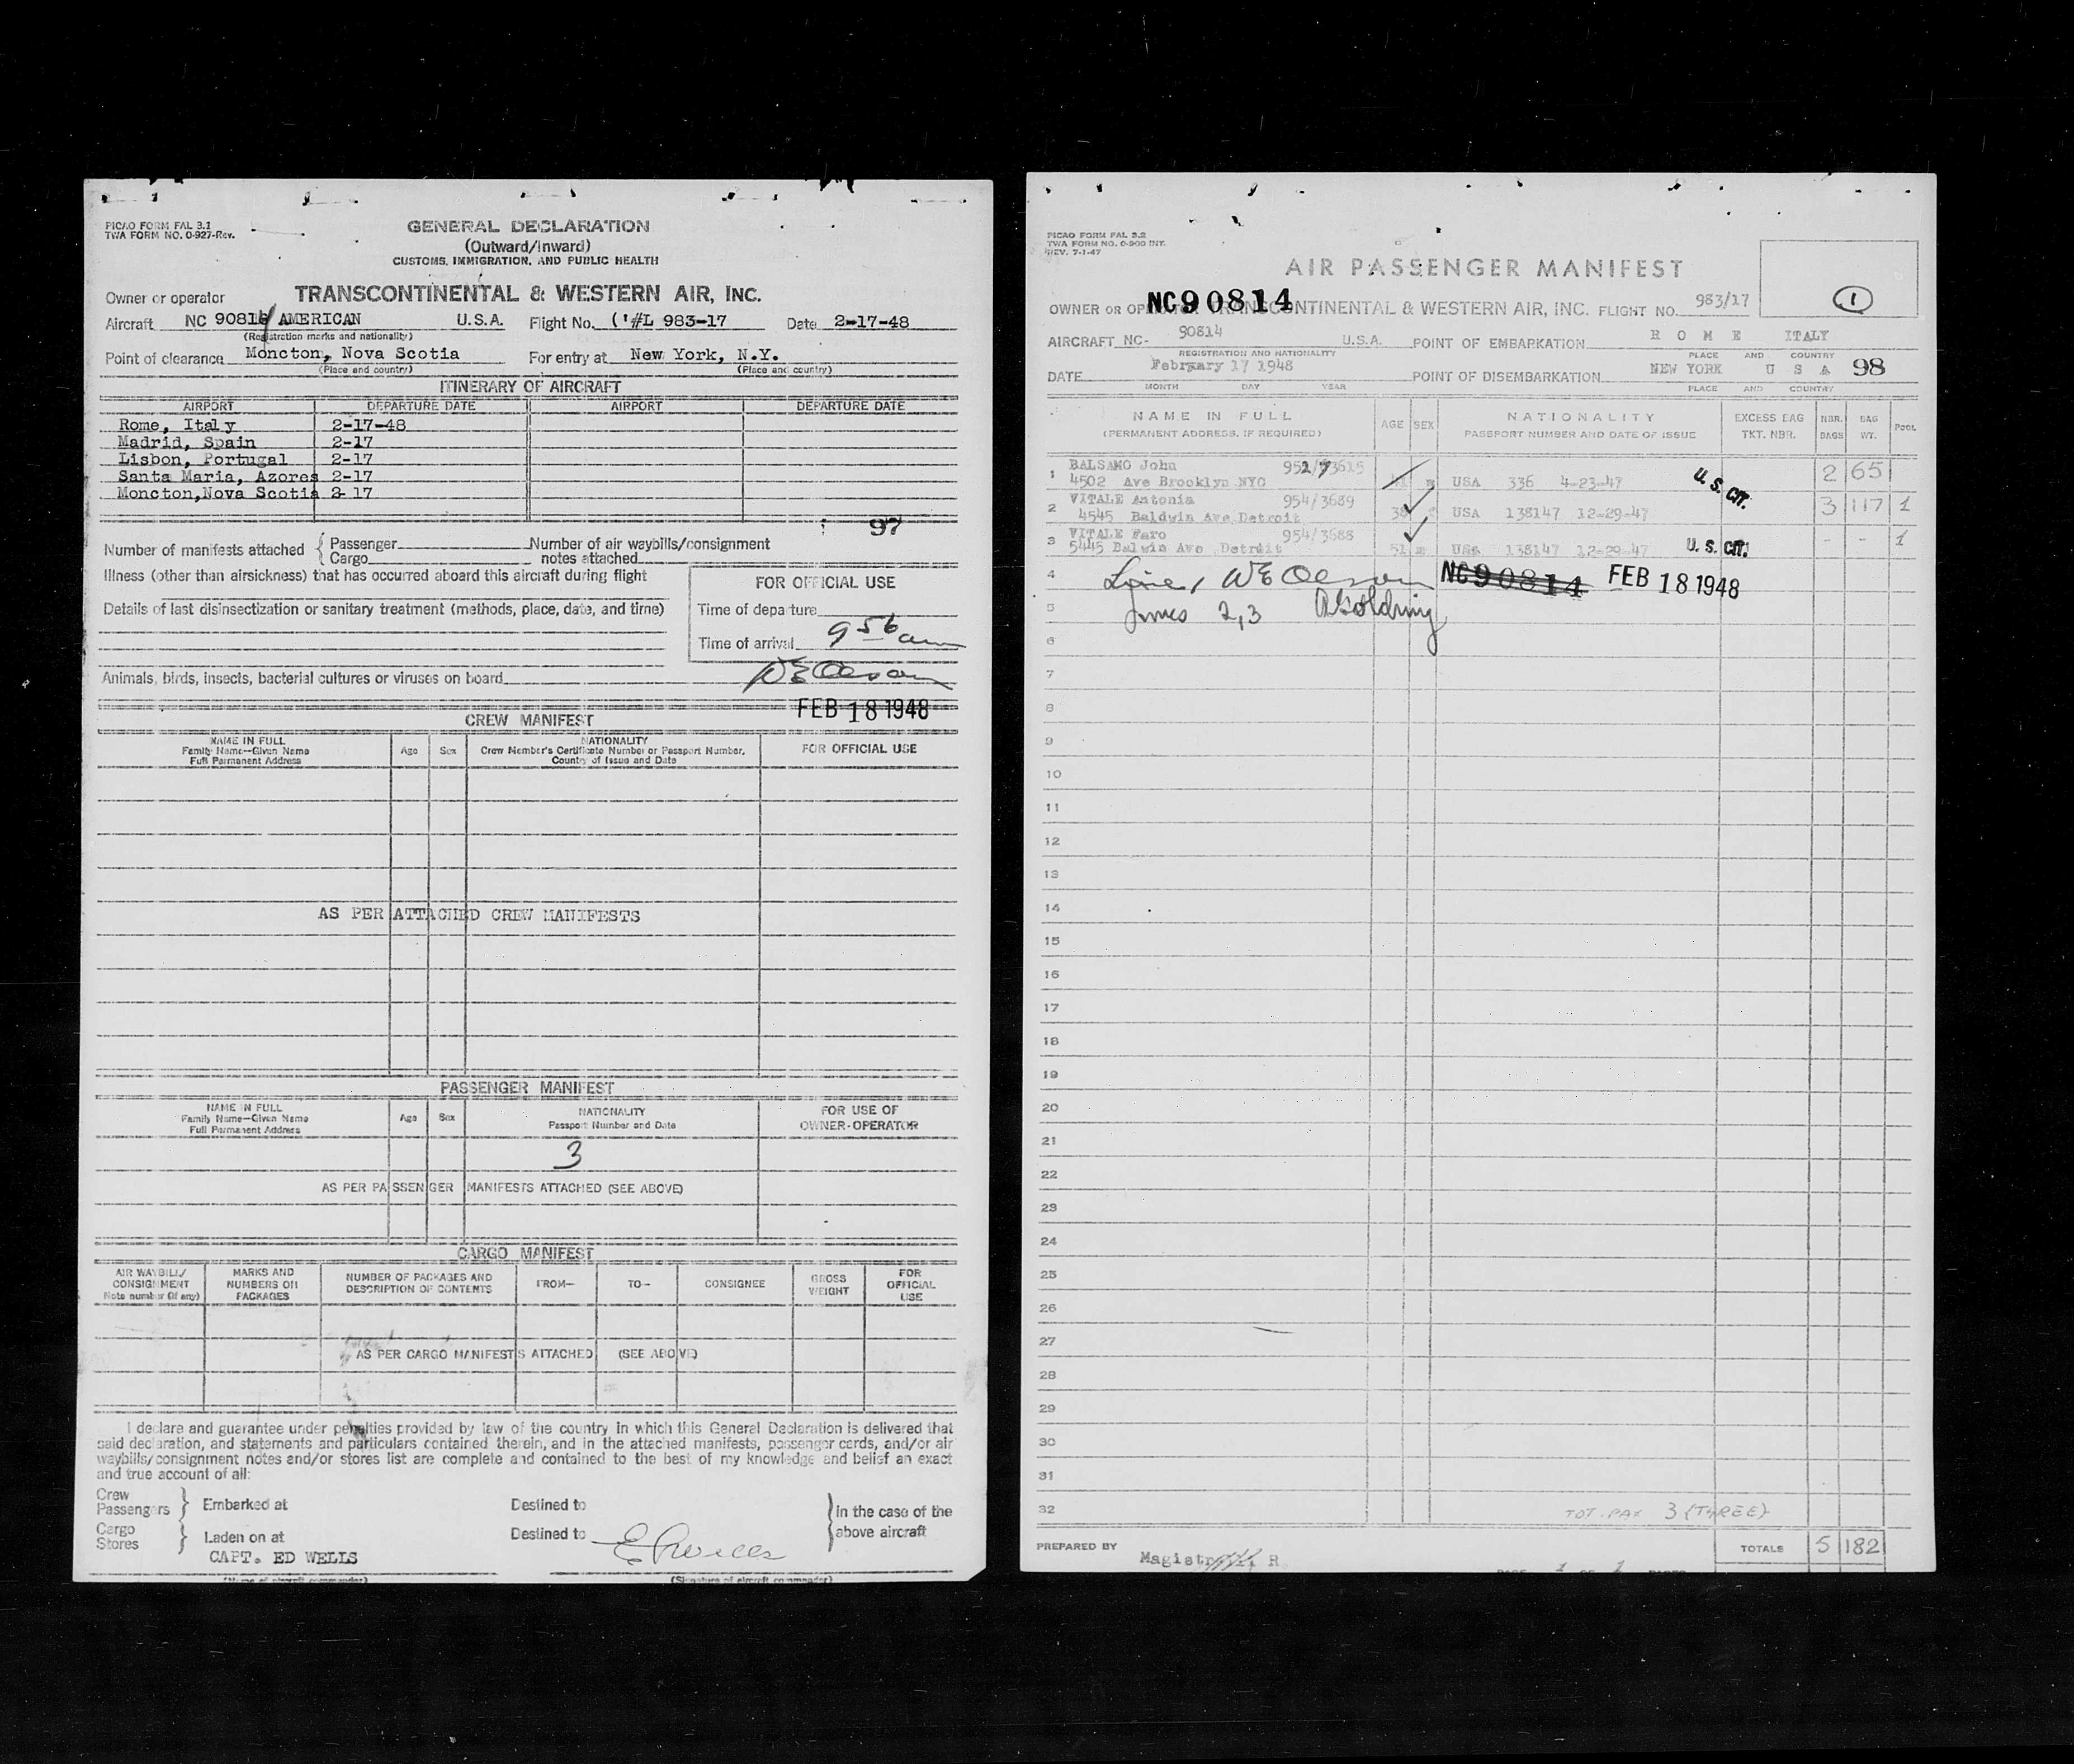 PICAO FORM FAL 3.1
TWA FORM NO. 0-927-Rev.
GENERAL DECLARATION
(Outward/Inward)
CUSTOMS, IMMIGRATION, AND PUBLIC HEALTH
Owner or operator TRANSCONTINENTAL & WESTERN AIR, INC.
Aircraft NC 90814 AMERICAN U.S.A. Flight No. ('#L 983-17 Date 2-17-48
(Registration marks and nationality)
Point of clearance Moncton, Nova Scotia For entry at New York, N.Y.
(Place and country) (Place and country)
ITINERARY OF AIRCRAFT
AIRPORT DEPARTURE DATE AIRPORT DEPARTURE DATE
Rome, Italy 2-17-48
Madrid, Spain 2-17
Lisbon, Portugal 2-17
Santa Maria, Azores 2-17
Moncton,Nova Scotia 2-17
97
Number of manifests attached { Passenger Number of air waybills/consignment
Cargo notes attached
Illness (other than airsickness) that has occurred aboard this aircraft during flight
FOR OFFICIAL USE
Details of last disinsectization or sanitary treatment (methods, place, date, and time)
Time of departure
Time of arrival 9 56 am
Animals, birds, insects, bacterial cultures or viruses on board
WE Oleson
FEB 18 1948
CREW MANIFEST
NAME IN FULL
Family Name—Given Name
Full Permanent Address
Age Sex
NATIONALITY
Crew Member's Certificate Number or Passport Number,
Country of Issue and Date
FOR OFFICIAL USE
AS PER ATTACHED CREW MANIFESTS
PASSENGER MANIFEST
NAME IN FULL
Family Name—Given Name
Full Permanent Address
Age Sex
NATIONALITY
Passport Number and Date
FOR USE OF
OWNER-OPERATOR
3
AS PER PASSENGER MANIFESTS ATTACHED (SEE ABOVE)
CARGO MANIFEST
AIR WAYBILL/
CONSIGNMENT
Note number (if any)
MARKS AND
NUMBERS ON
PACKAGES
NUMBER OF PACKAGES AND
DESCRIPTION OF CONTENTS
FROM—
TO—
CONSIGNEE
GROSS
WEIGHT
FOR
OFFICIAL
USE
AS PER CARGO MANIFESTS ATTACHED (SEE ABOVE)
I declare and guarantee under penalties provided by law of the country in which this General Declaration is delivered that
said declaration, and statements and particulars contained therein, and in the attached manifests, passenger cards, and/or air
waybills/consignment notes and/or stores list are complete and contained to the best of my knowledge and belief an exact
and true account of all:
Crew
Passengers } Embarked at Destined to
Cargo
Stores } Laden on at Destined to
in the case of the
above aircraft
CAPT. ED WELLS
E Wells
(Name of aircraft commander) (Signature of aircraft commander)
PICAO FORM FAL 3.2
TWA FORM NO. 0-900 INT.
REV. 7-1-47
AIR PASSENGER MANIFEST
1
NC90814
OWNER OR OPERATOR TRANSCONTINENTAL & WESTERN AIR, INC. FLIGHT NO. 983/17
AIRCRAFT NC- 90814 U.S.A. POINT OF EMBARKATION R O M E ITALY
REGISTRATION AND NATIONALITY PLACE AND COUNTRY
DATE February 17 1948 POINT OF DISEMBARKATION NEW YORK U S A 98
MONTH DAY YEAR PLACE AND COUNTRY
NAME IN FULL
(PERMANENT ADDRESS, IF REQUIRED)
AGE SEX
NATIONALITY
PASSPORT NUMBER AND DATE OF ISSUE
EXCESS BAG
TKT. NBR.
NBR.
BAGS
BAG
WT.
POOL
1 BALSAMO John
4502 Ave Brooklyn NYC m USA 336 4-23-47 U.S. CIT. 2 65
2 VITALE Antonia 954/3689
4545 Baldwin Ave Detroit USA 138147 12-29-47 3 117 1
3 VITALE Faro 954/3688
5445 Balwin Ave Detroit 51 m USA 138147 12-29-47 U.S. CIT. - - 1
4 Line 1 WE Oleson NC90814 FEB 18 1948
5 Lines 2,3 A Goldring
6
7
8
9
10
11
12
13
14
15
16
17
18
19
20
21
22
23
24
25
26
27
28
29
30
31
32 TOT. PAX 3 (THREE)
PREPARED BY R TOTALS 5 182
PAGE 1 OF 1